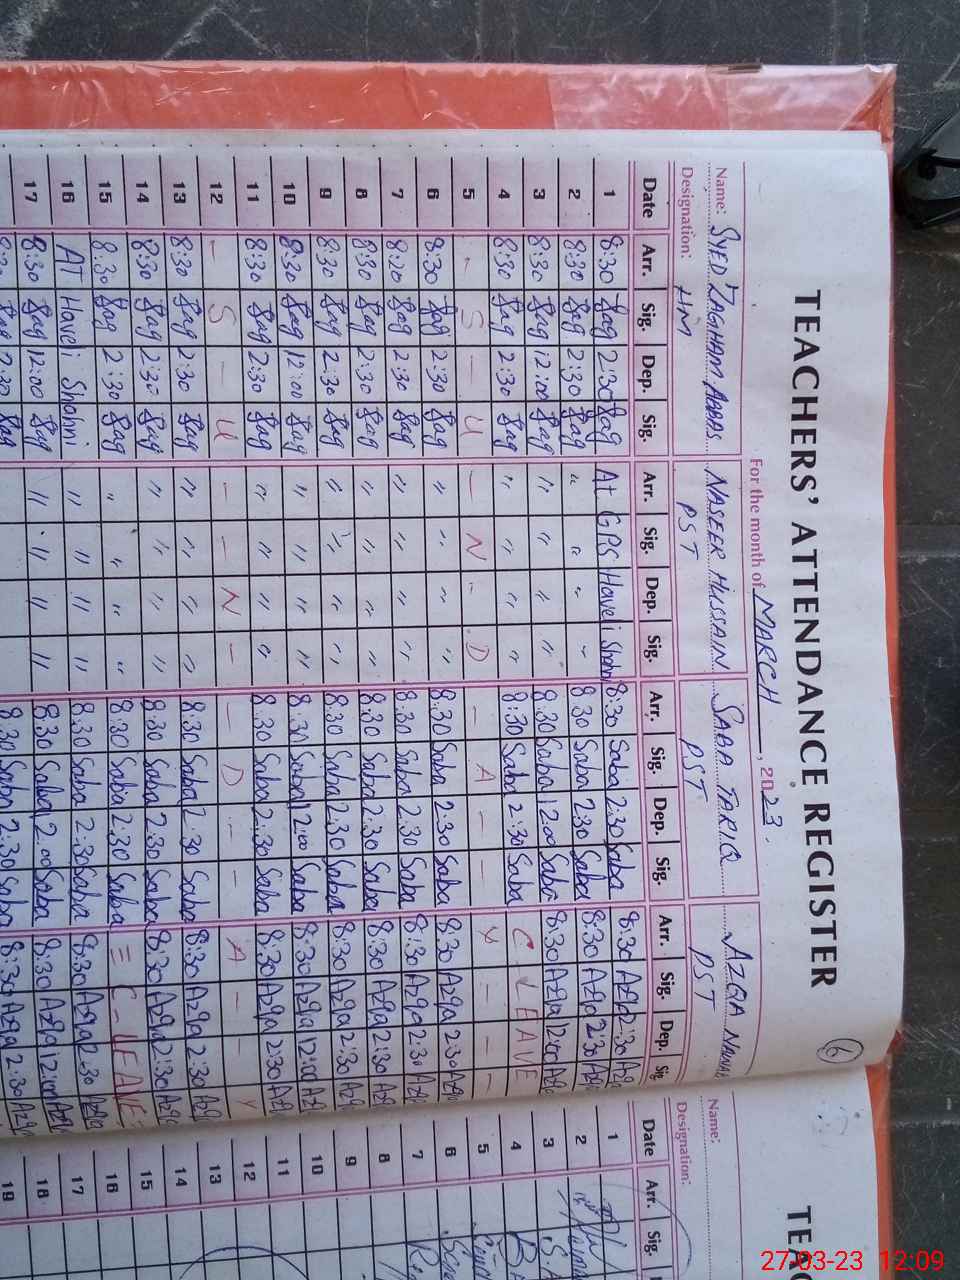 TEACHERS' ATTENDANCE REGISTER
6
For the month of MARCH, 2023.
Name: SYED ZAGHAM ABBAS NASEER HUSSAIN SABA TARIQ AZQA NAWAB
Designation: HM PST PST PST
Date Arr. Sig. Dep. Sig. Arr. Sig. Dep. Sig. Arr. Sig. Dep. Sig. Arr. Sig. Dep. Sig
1 8:30 Zag 2:30 Zag At GPS Haveli 8:30 Saba 2:30 Saba 8:30 Azqa 2:30
2 8:30 Zag 2:30 Zag " " " " 8:30 Saba 2:30 Saba 8:30 Azqa 2:30
3 8:30 Zag 12:00 Zag " " " " 8:30 Saba 12:00 Saba 8:30 Azqa 12:00
4 8:30 Zag 2:30 Zag " " " " 8:30 Saba 2:30 Saba C - LEAVE
5 - S - U - N - D - A - - Y - - -
6 8:30 Zag 2:30 Zag " " " " 8:30 Saba 2:30 Saba 8:30 Azqa 2:30
7 8:20 Zag 2:30 Zag " " " " 8:30 Saba 2:30 Saba 8:30 Azqa 2:30
8 8:30 Zag 2:30 Zag " " " " 8:30 Saba 2:30 Saba 8:30 Azqa 2:30
9 8:30 Zag 2:30 Zag " " " " 8:30 Saba 2:30 Saba 8:30 Azqa 2:30
10 8:30 Zag 12:00 Zag " " " " 8:30 Saba 12:00 Saba 8:30 Azqa 12:00
11 8:30 Zag 2:30 Zag " " " " 8:30 Saba 2:30 Saba 8:30 Azqa 2:30
12 - S - U - - N - - D - - A - - Y
13 8:30 Zag 2:30 Zag " " " " 8:30 Saba 2:30 Saba 8:30 Azqa 2:30
14 8:30 Zag 2:30 Zag " " " " 8:30 Saba 2:30 Saba 8:30 Azqa 2:30
15 8:30 Zag 2:30 Zag " " " " 8:30 Saba 2:30 Saba = C - LEAVE =
16 AT Haveli Shahni " " " " 8:30 Saba 2:30 Saba 8:30 Azqa 2:30
17 8:30 Zag 12:00 Zag " " " " 8:30 Saba 12:00 Saba 8:30 Azqa 12:00
8:30 Saba 2:30 Saba 8:30 Azqa 2:30
TEAC
Name:
Designation:
Date Arr. Sig.
1
2
3
4
5
6
7
8
9
10
11
12
13
14
15
16
17
18
19
27-03-23 12:09